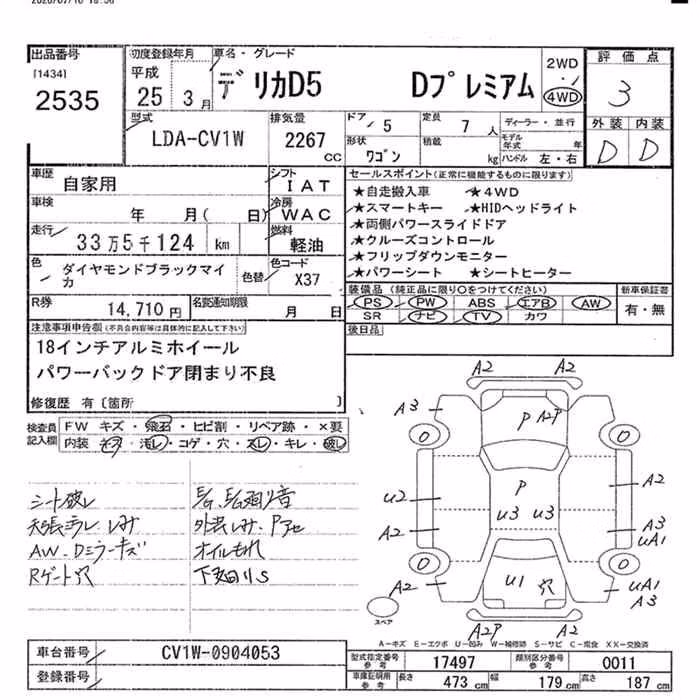 出品番号
[1434]
2535
初度登録年月
平成
25 3月
車名・グレード
デリカD5 Dプレミアム
2WD
・
4WD
評価点
3
外装 内装
D D
型式
LDA-CV1W
排気量
2267
CC
ドア
5
定員
7人
ディーラー・並行
形状
ワゴン
積載
kg
モデル年式 年
ハンドル 左・右
車歴
自家用
シフト
IAT
車検
年 月( 日)
冷房
WAC
走行
33万5千124 km
燃料
軽油
色
ダイヤモンドブラックマイカ
色替
色コード
X37
R券
14,710円
名変通知期限
月 日
セールスポイント(正常に機能するものに限ります)
★自走搬入車 ★4WD
★スマートキー ★HIDヘッドライト
★両側パワースライドドア
★クルーズコントロール
★フリップダウンモニター
★パワーシート ★シートヒーター
装備品(純正品に限り○をつけてください)
PS PW ABS エアB AW
SR ナビ TV カワ
新車保証書
有・無
後日品
注意事項申告欄(不具合内容等は具体的に記入して下さい)
18インチアルミホイール
パワーバックドア閉まり不良
修復歴 有〔箇所 〕
検査員記入欄
FW キズ・飛石・ヒビ割・リペア跡・×要
内装 キズ・汚レ・コゲ・穴・スレ・キレ・破レ
シート破レ
AW、Dミラーキズ
Rゲート穴
オイルもれ
下廻りS
A2 A2
A3
P A2P
P
U2
U3 U3
A2
A2
A3
UA1
A2
U1 穴
UA1
A3
A2P A2
スペア
A-キズ E-エクボ U-凹み W-補修跡 S-サビ C-腐食 XX-交換済
車台番号
CV1W-0904053
登録番号
型式指定番号 参考
17497
類別区分番号 参考
0011
車庫証明用 参考
長さ 473cm 幅 179cm 高さ 187cm